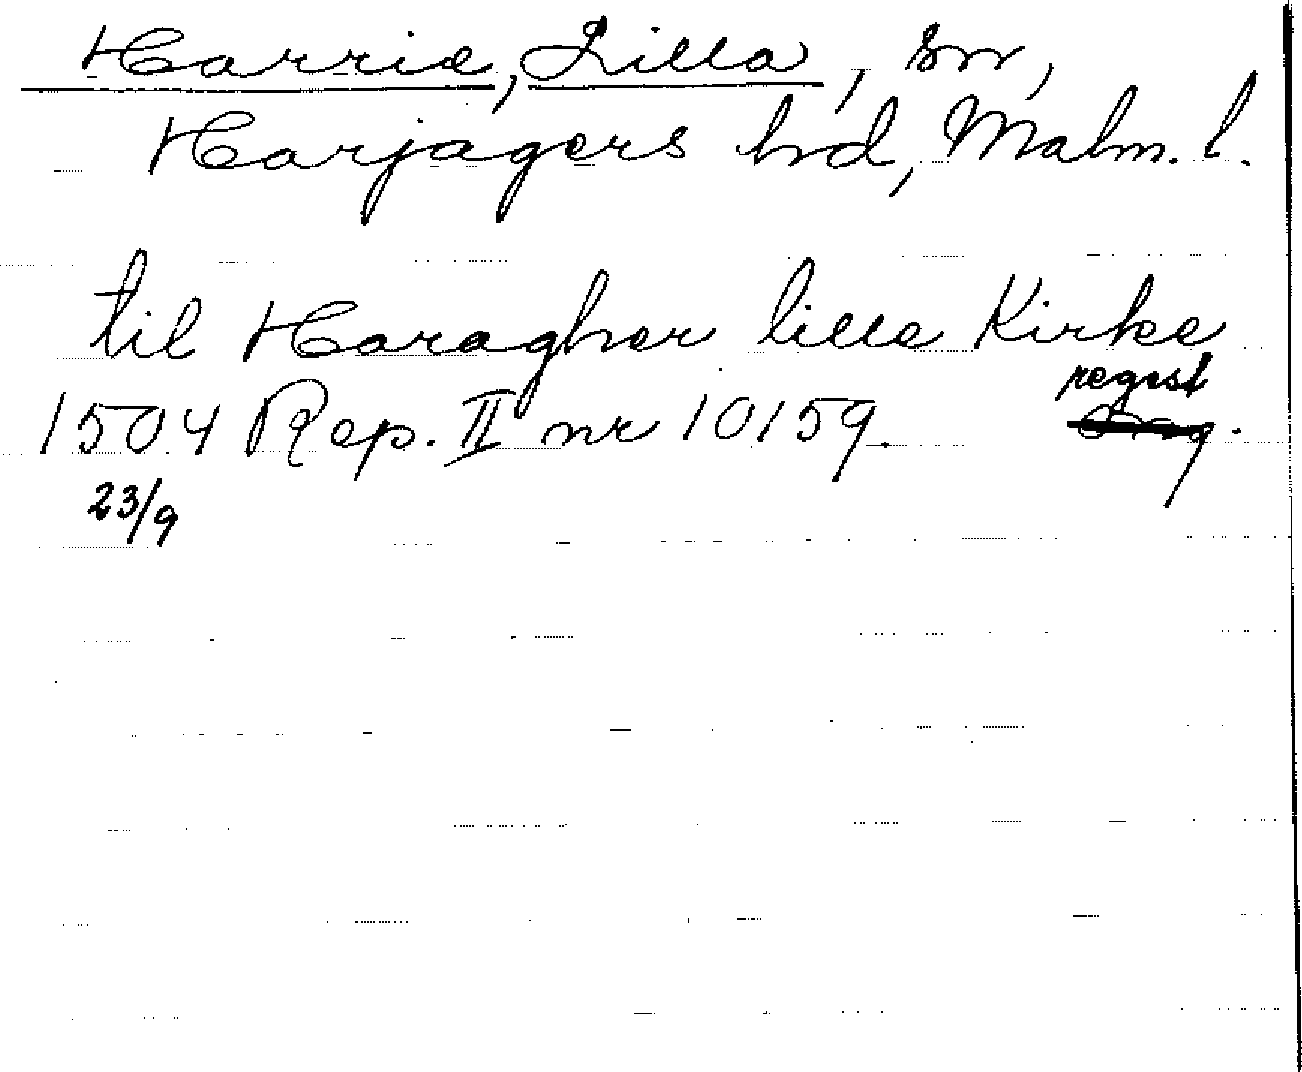 Harrie, Lilla, sn,
Harjagers hd, Malm. l.
til Haragher lille Kirke
1504 Rep. II nr 10159. regest
23/9